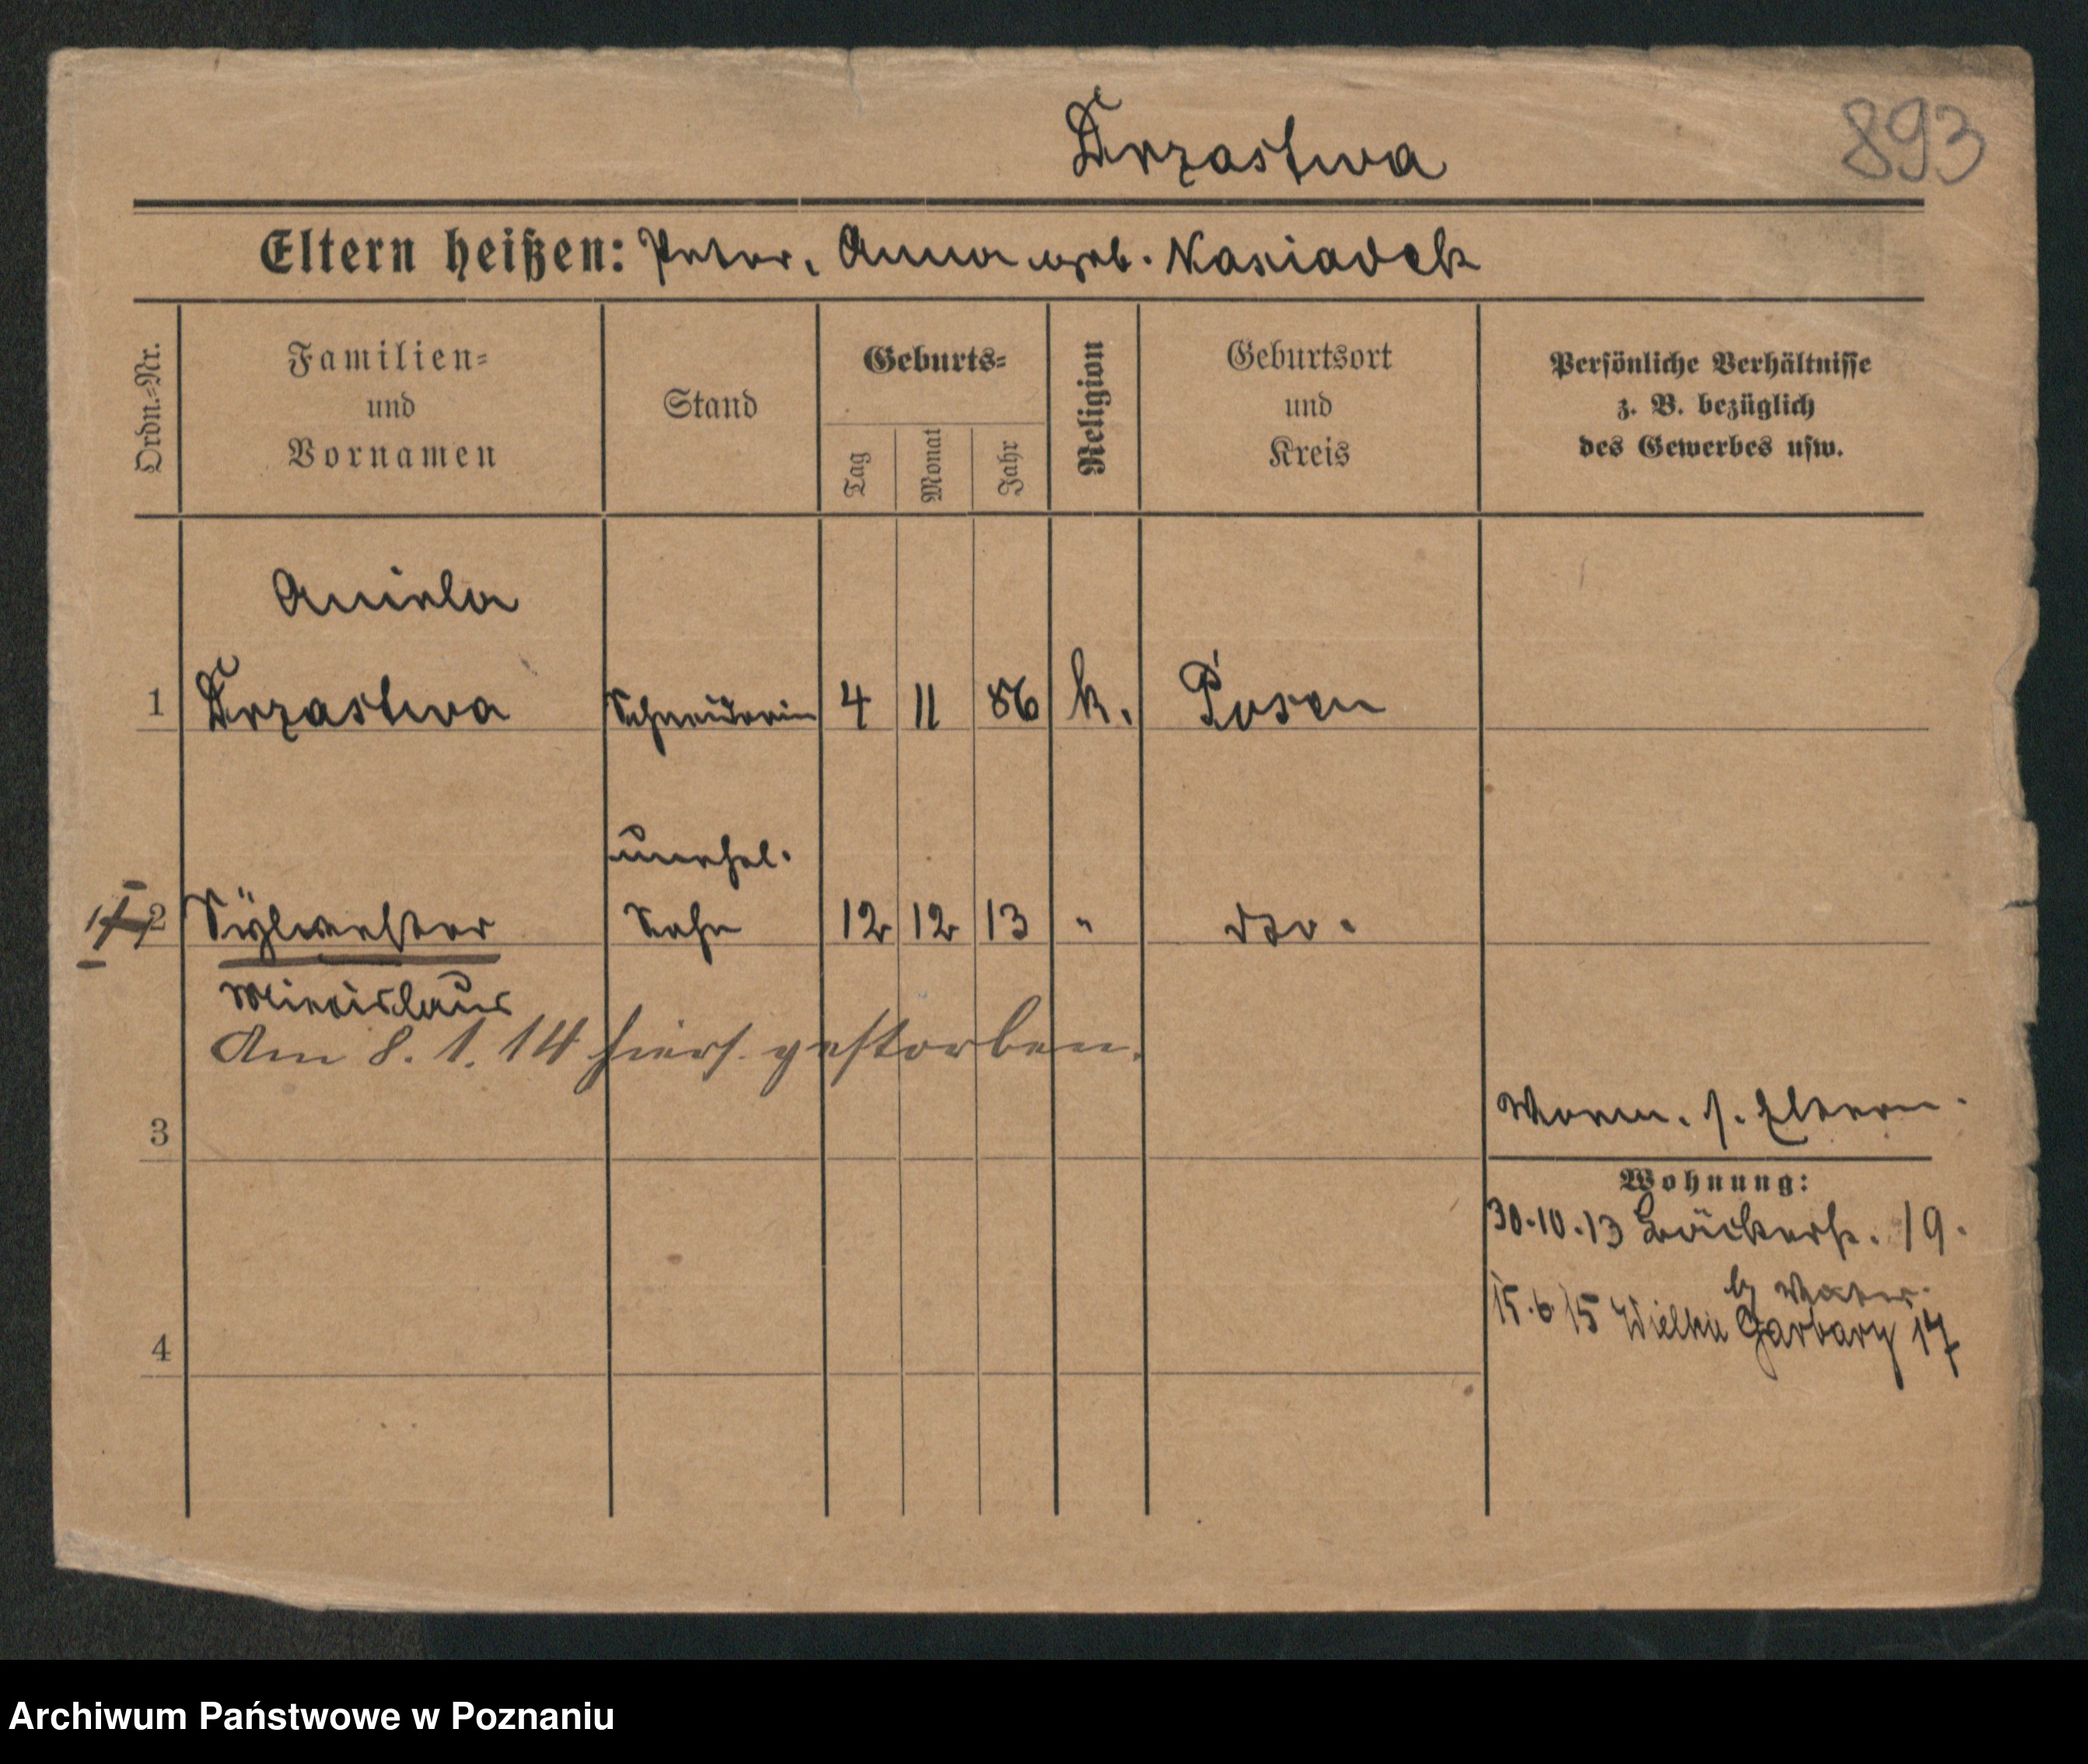 Drzastwa
893
Eltern heißen: Peter, Anna geb. Kasiadek
Ordn.=Nr.
Familien=
und
Vornamen
Stand
Geburts=
Tag
Monat
Jahr
Religion
Geburtsort
und
Kreis
Persönliche Verhältnisse
z. B. bezüglich
des Gewerbes usw.
Aniela
1 Drzastwa Schneiderin 4 11 86 k. Posen
unehel.
2 Sylwester Sohn 12 12 13 " dto.
Miecislaus
Am 8. 1. 14 hiers. gestorben.
3
Worm. s. Eltern.
Wohnung:
30.10.13 Bäckerst. 19.
b/ Vater.
15.6 15 Wielkie Garbary 17
4
Archiwum Państwowe w Poznaniu